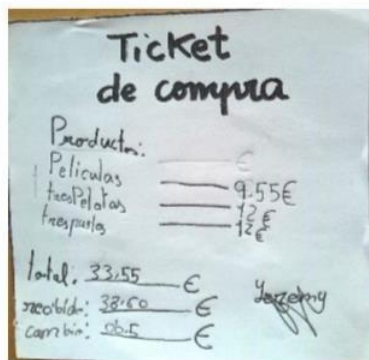 Ticket
de compra
Productos:
€
Peliculas 9.55€
tres Pelotas 12€
tres puzles 12€
total: 33,55 €
recibido: 38.60 €
cambio: 06.5 €